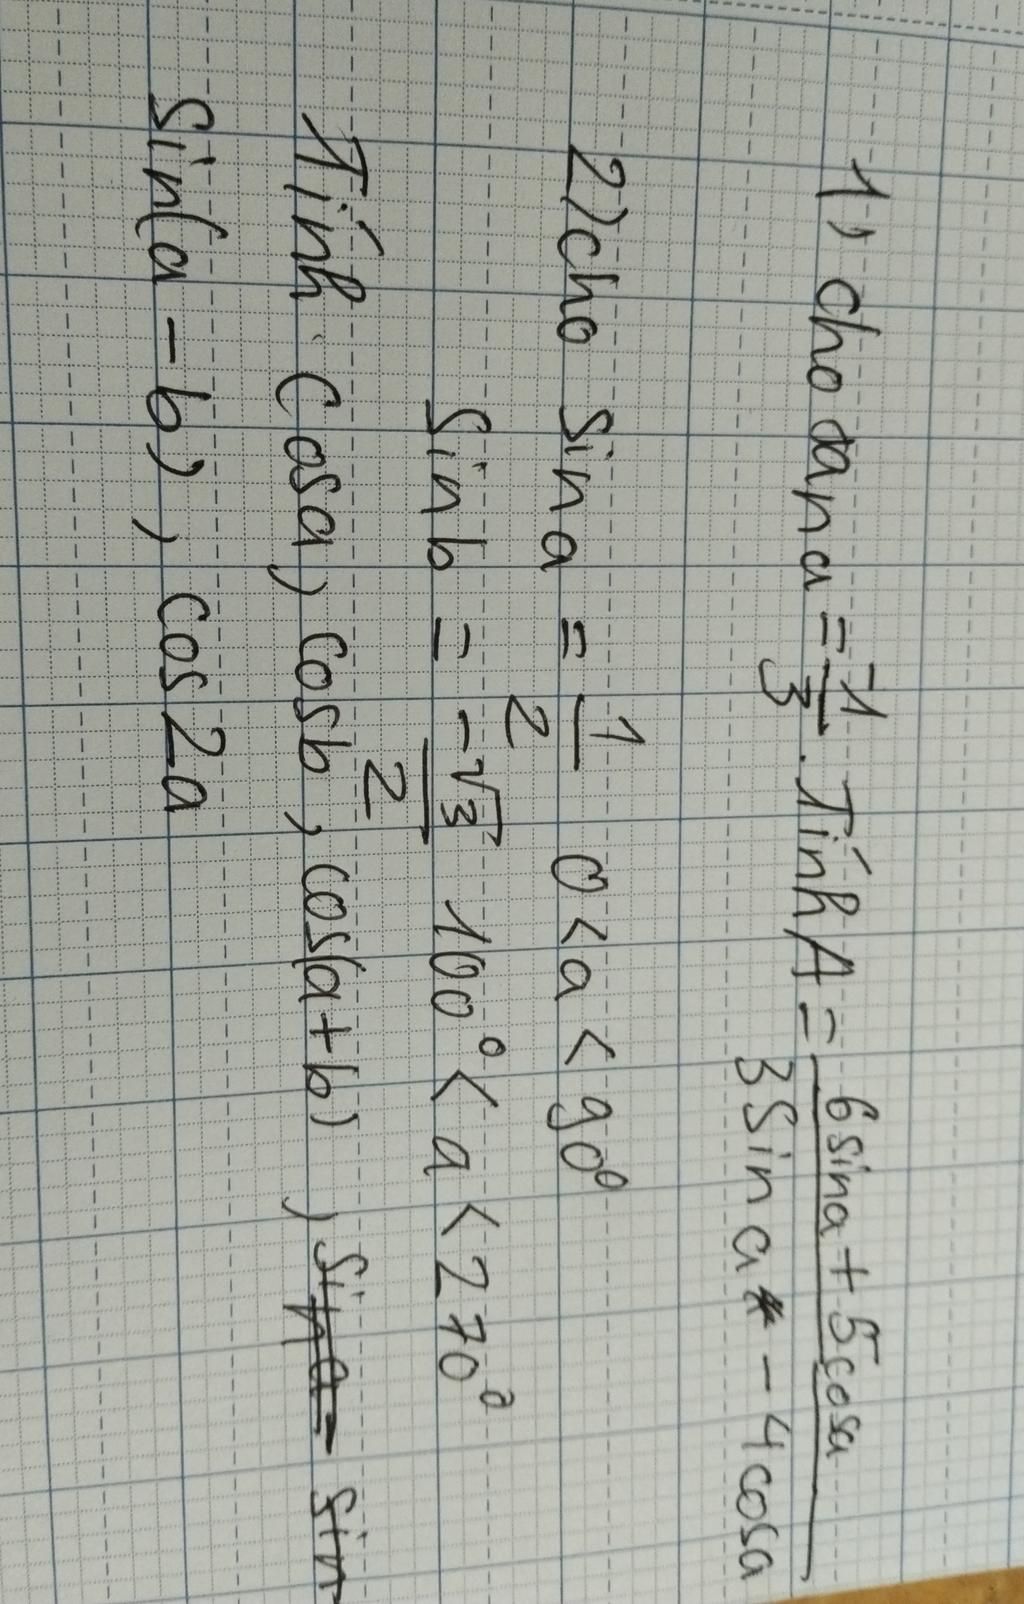 1) cho tan a = -1/3 . Tính A = (6 sina + 5cosa)/(3 Sin a - 4cosa)
2) cho Sin a = 1/2 0 < a < 90°
Sinb = -√3/2 100° < a < 270°
Tính cosa, cosb, cos(a+b),
Sin(a - b), cos2a